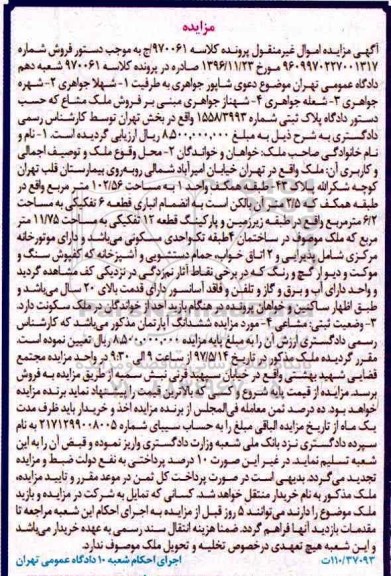 مزایده
آگهی مزایده اموال غیرمنقول پرونده کلاسه ۹۷۰۰۶۱/ج به موجب دستور فروش شماره
۹۶۰۹۹۷۰۲۲۷۰۰۱۳۱۷ مورخ ۱۳۹۶/۱۱/۲۳ صادره در پرونده کلاسه ۹۷۰۰۶۱ شعبه دهم
دادگاه عمومی تهران موضوع دعوی شاپور جواهری به طرفیت ۱- شهلا جواهری ۲- شهره
جواهری ۳- شعله جواهری ۴- شهناز جواهری مبنی بر فروش ملک مشاع که حسب
دستور دادگاه پلاک ثبتی شماره ۱۵۵۸/۳۹۹۳ واقع در بخش تهران توسط کارشناس رسمی
دادگستری به شرح ذیل به مبلغ ۸۵۰۰/۰۰۰/۰۰۰ ریال ارزیابی گردیده است. ۱- نام و
نام خانوادگی صاحب ملک: خواهان و خواندگان ۲- محل وقوع ملک و توصیف اجمالی
و کاربری آن: ملک واقع در تهران خیابان امیرآباد شمالی روبه‌روی بیمارستان قلب تهران
کوچه شکرالله پلاک ۲۳ طبقه همکف واحد ۱ به مساحت ۱۰۲/۵۶ متر مربع واقع در
طبقه همکف که ۲/۵ متر آن بالکن است به انضمام انباری قطعه ۶ تفکیکی به مساحت
۶/۲ مترمربع واقع در طبقه زیرزمین و پارکینگ قطعه ۱۲ تفکیکی به مساحت ۱۱/۷۵ متر
مربع که ملک موصوف در ساختمان ۴طبقه تک‌واحدی مسکونی می‌باشد و دارای موتورخانه
مرکزی شامل پذیرایی و ۲ اتاق خواب حمام دستشویی و آشپزخانه که کفپوش سنگ و
موکت و دیوار گچ و رنگ که در برخی نقاط آثار نم‌زدگی در نزدیکی کف مشاهده گردید
و واحد دارای آب و برق و گاز و تلفن و فاقد آسانسور دارای قدمت بالای ۲۰ سال می‌باشد و
طبق اظهار ساکنین و خواهان پرونده در هنگام بازید احد از خواندگان در ملک سکونت دارد.
۳- وضعیت ثبتی: مشاعی ۴- مورد مزایده ششدانگ آپارتمان مذکور می‌باشد که کارشناس
رسمی دادگستری ارزش آن را به مبلغ پایه مزایده ۸۵۰۰/۰۰۰/۰۰۰ ریال تعیین نموده است.
مقرر گردیده ملک مذکور در تاریخ ۹۷/۵/۱۴ از ساعت ۹ الی ۹:۳۰ در واحد مزایده مجتمع
قضایی شهید بهشتی واقع در خیابان سمیه از طریق مزایده به فروش
برسد. مزایده از قیمت پایه شروع و کسی که بالاترین قیمت را پیشنهاد نماید برنده مزایده
خواهد بود. ده درصد ثمن معامله فی‌المجلس از برنده مزایده اخذ و خریدار باید ظرف مدت
یک ماه از تاریخ مزایده الباقی مبلغ را به حساب سیبای شماره ۲۱۷۱۲۹۹۰۰۸۰۰۵ به نام
سپرده دادگستری نزد بانک ملی شعبه وزارت دادگستری واریز نموده و قبض آن را به این
شعبه تسلیم نماید. در غیر این صورت ۱۰ درصد پرداختی به نفع دولت ضبط و مزایده
تجدید می‌گردد. بدیهی است در صورت پرداخت کل ثمن در موعد مقرر و تایید مزایده،
ملک مذکور به نام خریدار منتقل خواهد شد. کسانی که تمایل به شرکت در مزایده و بازید
ملک موضوع را دارند می‌توانند ۵ روز قبل از مزایده به اجرای احکام این شعبه مراجعه تا
مقدمات بازدید آنها فراهم گردد. ضمنا هزینه انتقال سند رسمی به عهده خریدار می‌باشد
و این شعبه هیچ تعهدی درخصوص تخلیه و تحویل ملک موصوف ندارد.
۱۱۰/۳۷۰۹۳ت اجرای احکام شعبه ۱۰ دادگاه عمومی تهران